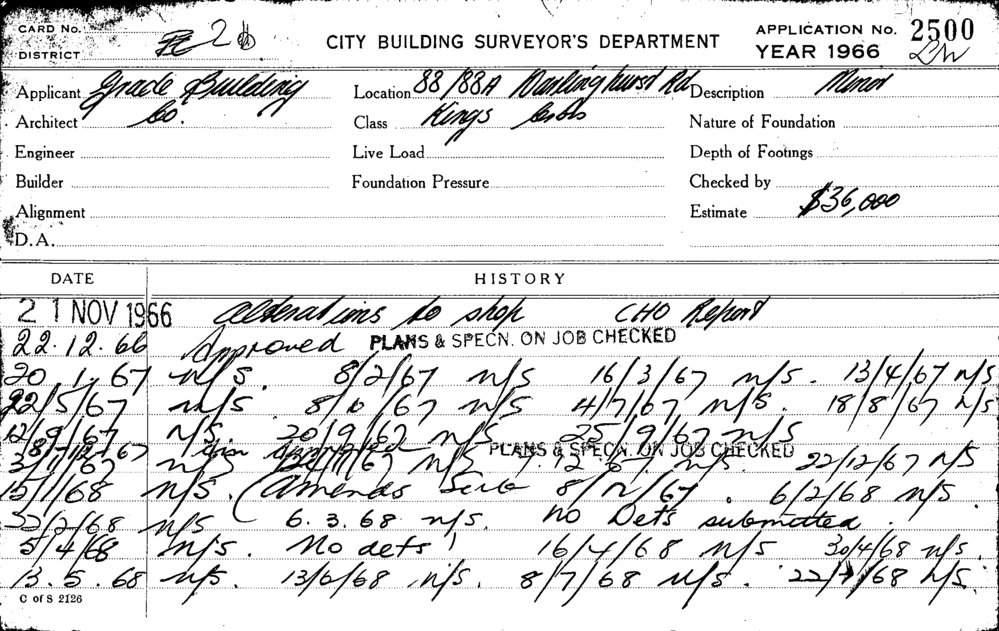 CARD No.
DISTRICT
CITY BUILDING SURVEYOR'S DEPARTMENT
APPLICATION No. 2500
YEAR 1966
Applicant Grade Building
Location 88/88A Darlinghurst Rd
Description Minor
Architect Co.
Class Kings Cross
Nature of Foundation
Engineer
Live Load
Depth of Footings
Builder
Foundation Pressure
Checked by
Alignment
Estimate $36,000
D.A.
DATE HISTORY
21 NOV 1966 Alterations to shop CHO Report
22.12.66 Approved PLANS & SPECN. ON JOB CHECKED
20.1.67 n/s. 8/2/67 n/s 16/3/67 n/s. 13/4/67 n/s
22/5/67 n/s 8/6/67 n/s 4/7/67 n/s. 18/8/67 n/s
12/9/67 n/s. 20/9/67 n/s 25/9/67 n/s
18/12/67 PLANS & SPECN. ON JOB CHECKED
3/11/67 n/s 24/11/67 n/s 7.12.67 n/s. 22/12/67 n/s
15/1/68 n/s. (Amends 8/12/67. 6/2/68 n/s
22/2/68 n/s 6.3.68 n/s. No Dets submitted.
5/4/68 n/s. No dets 16/4/68 n/s 30/4/68 n/s.
13.5.68 n/s. 13/6/68 n/s. 8/7/68 n/s. 22/7/68 n/s.
C of S 2126